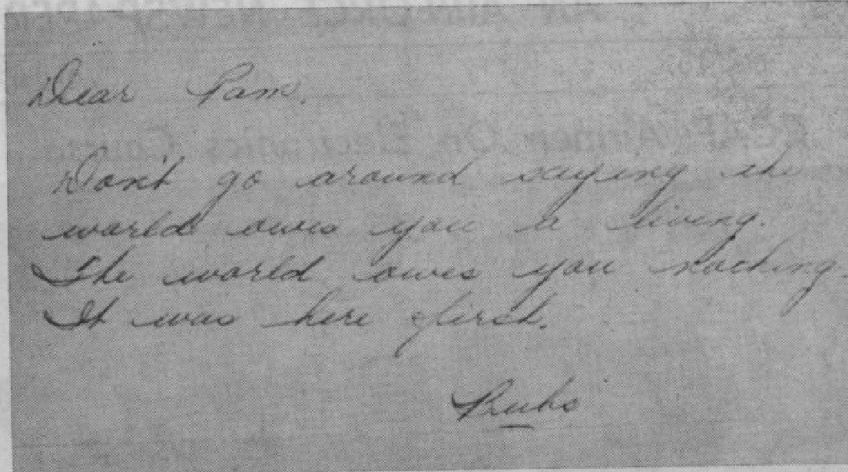 Dear Pam,
Don't go around saying the
world owes you a living.
The world owes you nothing.
It was here first.